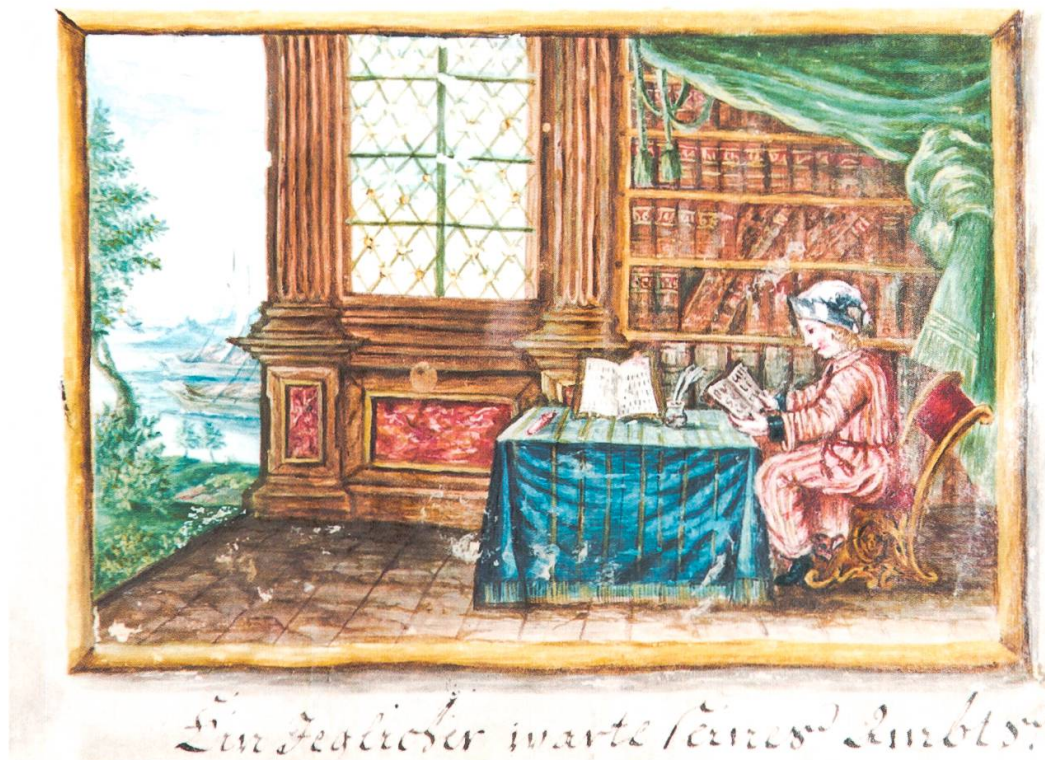 Ein Jeglicher warte seines Ambts.